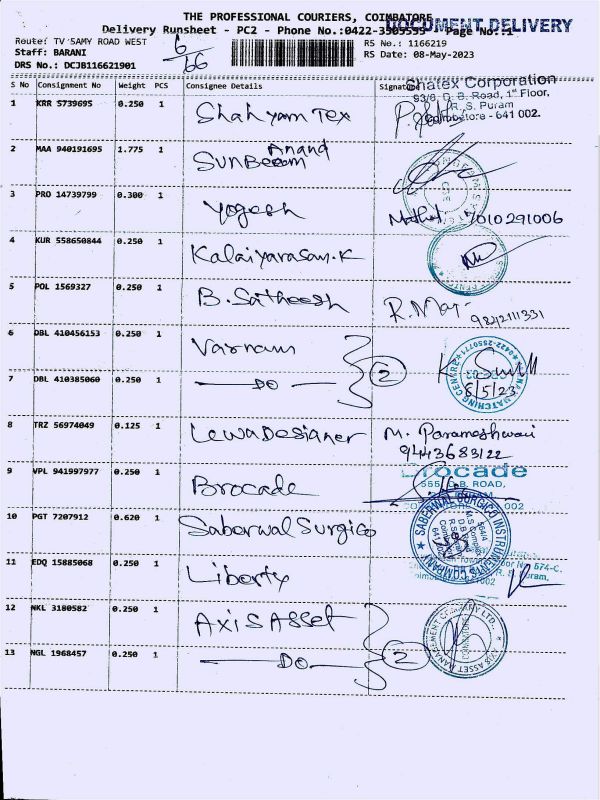 THE PROFESSIONAL COURIERS, COIMBATORE
DOCUMENT.DELIVERY
Delivery Runsheet - PC2 - Phone No.:0422-3505555 Page No.:1
Route: TV SAMY ROAD WEST
Staff: BARANI
DRS No.: DCJB116621901
6/66
RS No.: 1166219
RS Date: 08-May-2023
S No Consignment No Weight PCS Consignee Details Signature
Shatex Corporation
93/6, D. B. Road, 1st Floor,
R. S. Puram
Coimbatore - 641 002.
1 KRR 5739695 0.250 1 Shahyam Tex
2 MAA 940191695 1.775 1 Sunbeeam Anand
3 PRO 14739799 0.300 1 Yogesh 7010291006
4 KUR 558650844 0.250 1 Kalaiyarasan.K
5 POL 1569327 0.250 1 B. Satheesh R. 9842111331
6 DBL 410456153 0.250 1 Varnam
7 DBL 410385060 0.250 1 — DO — 2 8/5/23
MATCHING CENTRE ★ 0422-2550771
8 TRZ 56974049 0.125 1 Lewa Designer M. Parameshwari
9443683122
9 VPL 941997977 0.250 1 Brocade
Brocade
555, D.B. ROAD,
002
10 PGT 7207912 0.620 1 Saberwal Surgico
★ SABERWAL SURGICO INSTRUMENTS COMPANY
564/A
M.S Complex
D.B. Road
R.S. Puram
Coimbatore
11 EDQ 15885068 0.250 1 Liberty
574-C,
R. S. Puram,
12 NKL 3180582 0.250 1 Axis Asset
13 NGL 1968457 0.250 1 — DO — 2
AXIS ASSET MANAGEMENT COMPANY LTD.
COIMBATORE